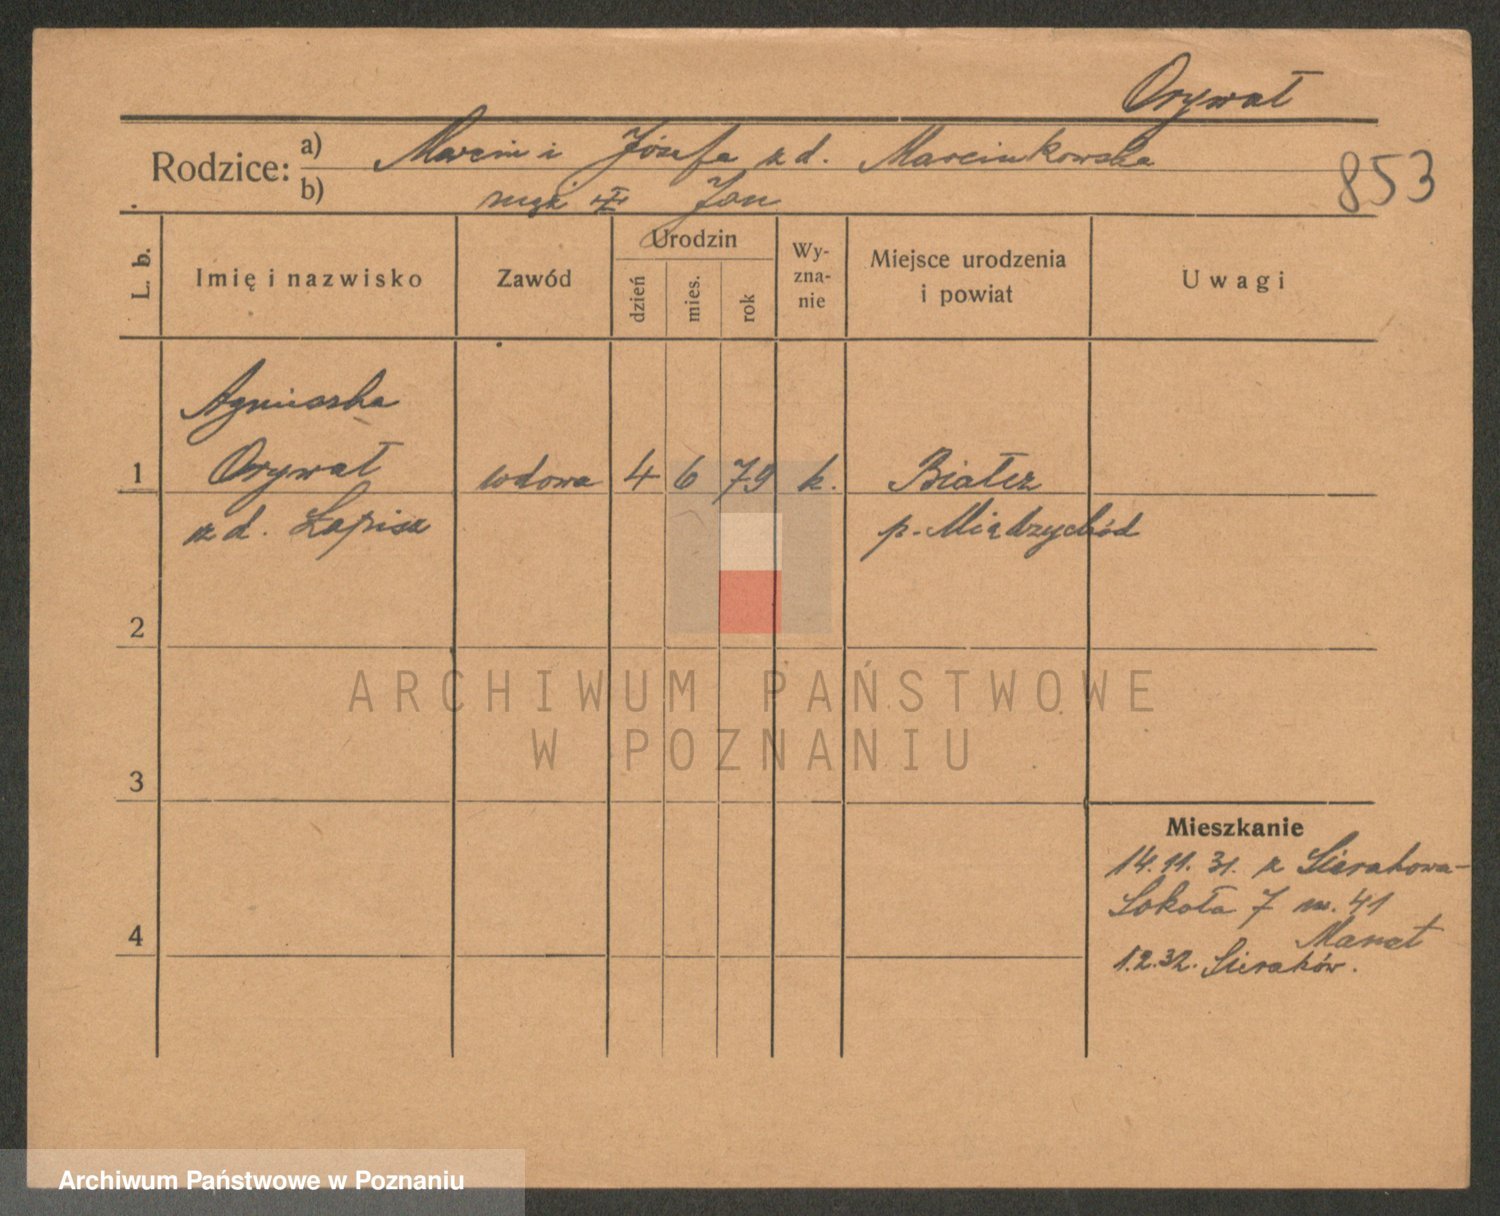 Orywał
Rodzice: a) Marcin i Józefa z d. Marcinkowska
b) mąż Jan
853
L. b.
Imię i nazwisko
Zawód
Urodzin
dzień
mies.
rok
Wy-
zna-
nie
Miejsce urodzenia
i powiat
Uwagi
Agnieszka
1 Orywał wdowa 4 6 79 k. Białcz
z d. Łapisz p. Międzychód
2
3
4
ARCHIWUM PAŃSTWOWE
W POZNANIU
Mieszkanie
14.11.31. z Sierakowa-
Sokoła 7 m. 41
1.2.32. Sieraków.
Archiwum Państwowe w Poznaniu